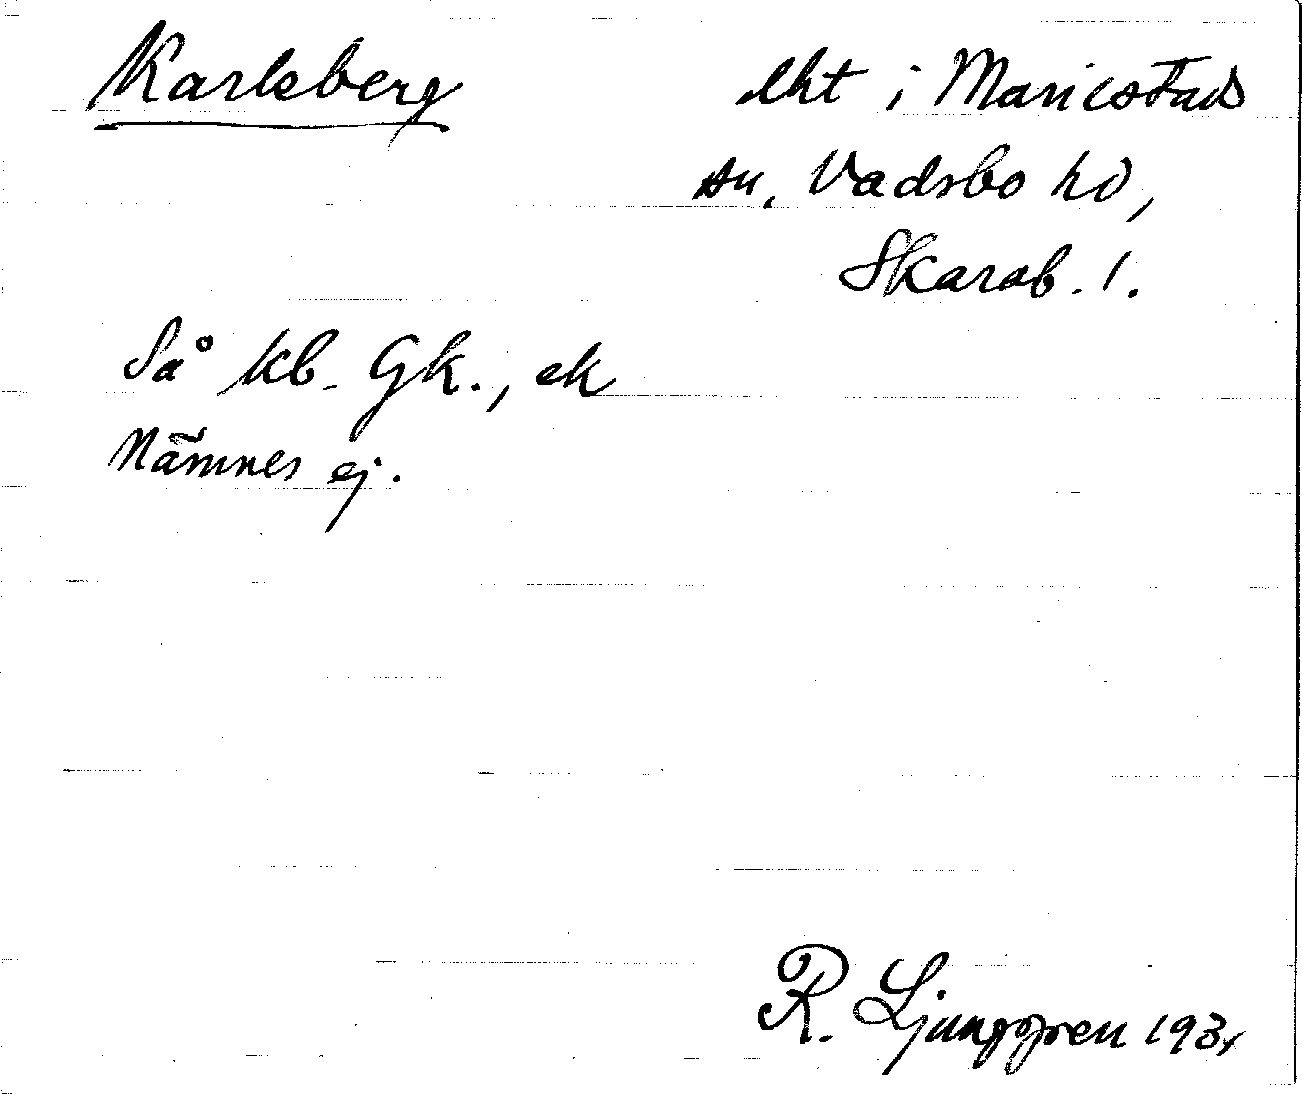 Karlsberg
lht i Mariestad
sn, Vadsbo hd,
Skarab. l.
Så kb. Gk., ek
Nämnes ej.
R. Ljunggren